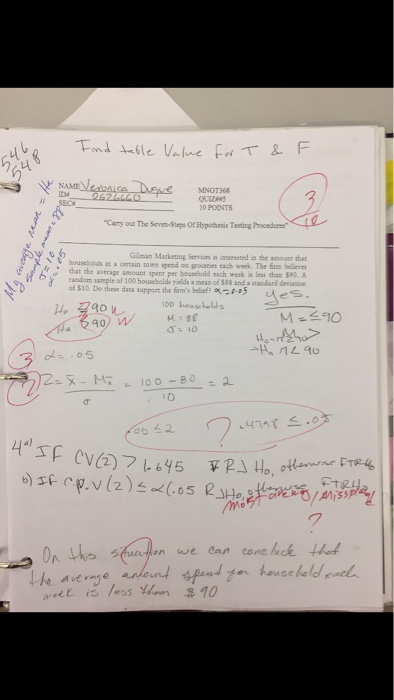 Find table Value for T & F
546
548
My average mean = Ho
sample mean = 88
σ = 10
α = .05
NAME Veronica Duque
ID# 0626660
SEC#
MNGT368
QUIZ##5
10 POINTS
3
10
"Carry out The Seven-Steps Of Hypothesis Testing Procedures"
Gilman Marketing Services is interested in the amount that
households in a certain town spend on groceries each week. The firm believes
that the average amount spent per household each week is less than $90. A
random sample of 100 households yields a mean of $88 and a standard deviation
of $10. Do these data support the firm's belief? α=0.05
yes.
100 households
M = 88
σ = 10
M = ≤90
3 α = .05
2 Z = x̄ - Mx̄ = 100 - 80 = 2
σ 10
.05 ≤ 2
? .4798 ≤ .05
4 a) IF CV(Z) > 1.645 RJ Ho, otherwise FTRHo
b) IF p.v(Z) ≤ α(.05 RJHo, otherwise FTRHo
?
On this situation we can conclude that
the average amount spent per household each
week is less than $90